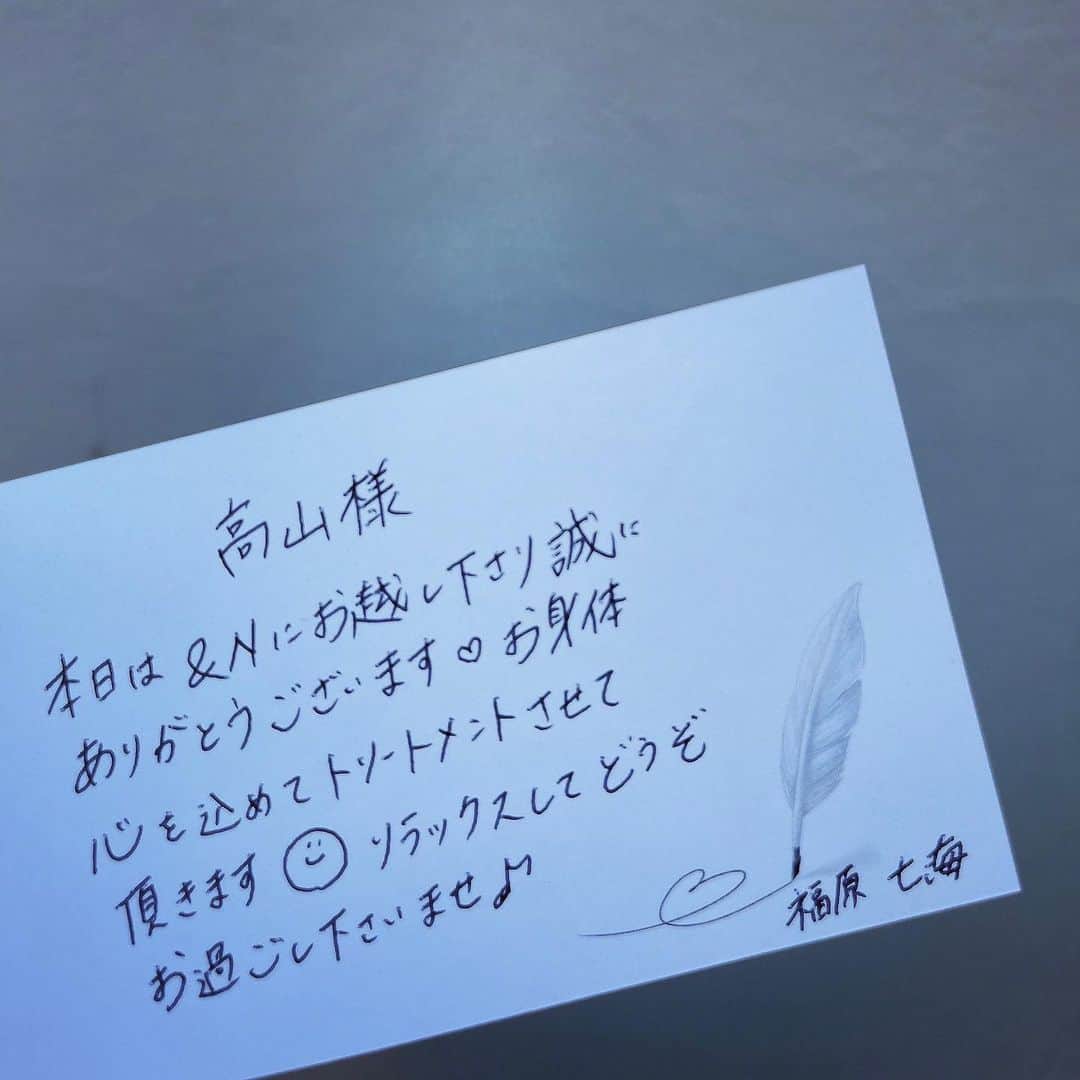 高山様
本日は &Nにお越し下さり誠に
ありがとうございます♡お身体
心を込めてトリートメントさせて
頂きます☺リラックスしてどうぞ
お過ごし下さいませ♪
福原 七海